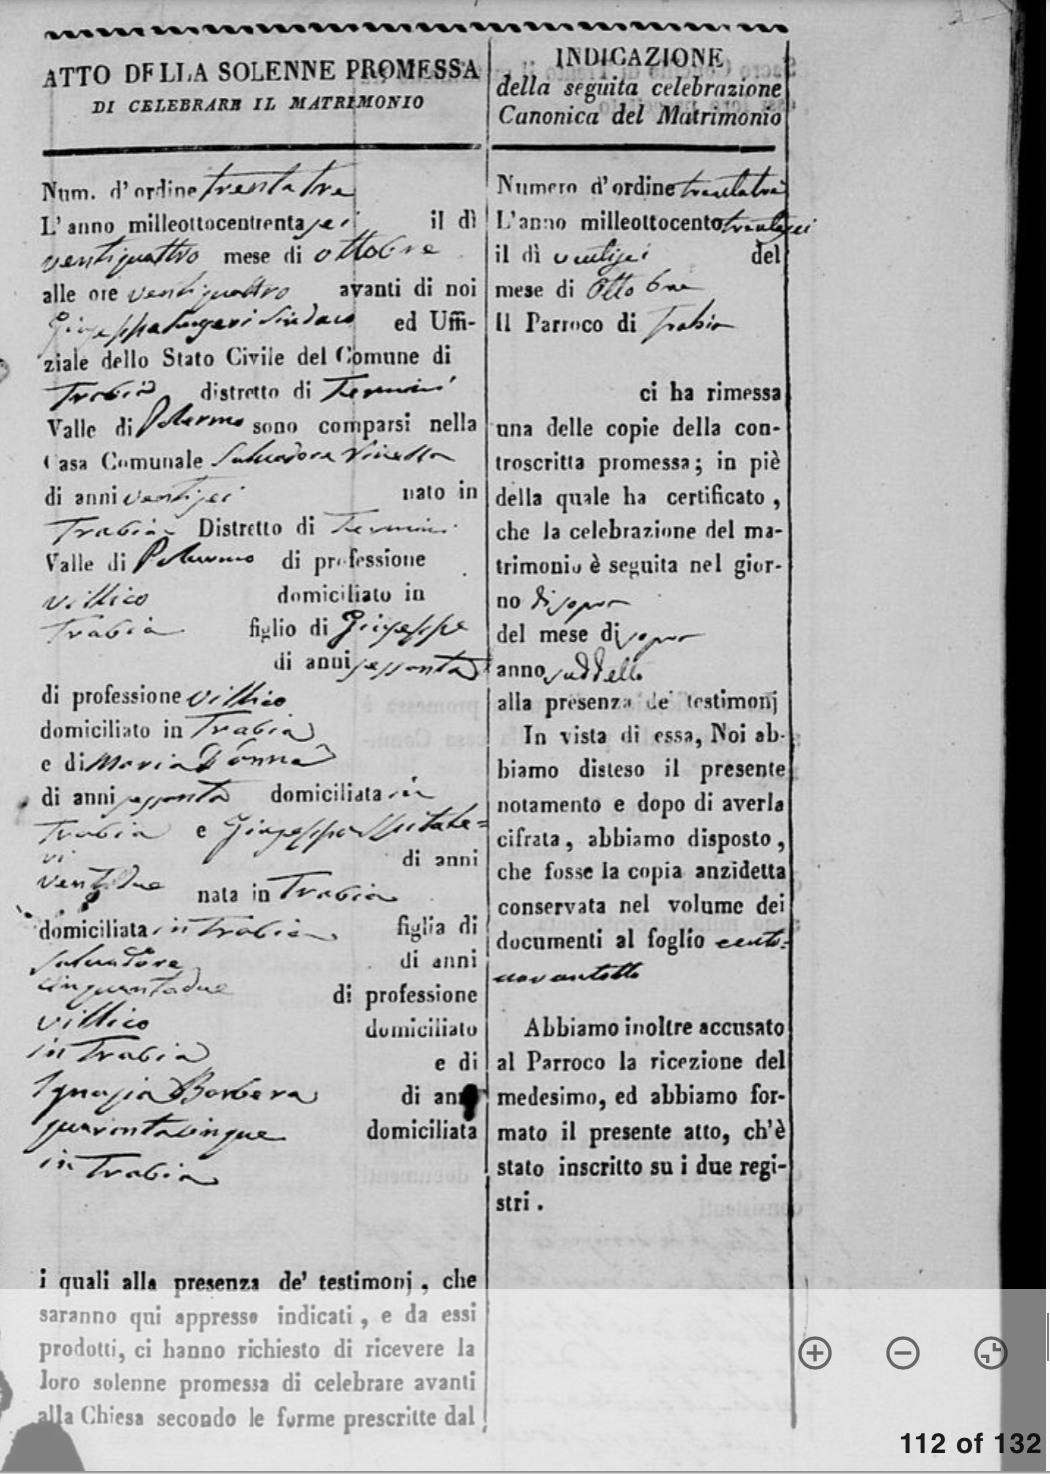 ATTO DELLA SOLENNE PROMESSA
DI CELEBRARE IL MATRIMONIO
Num. d'ordine trenta tre
L'anno milleottocentrenta sei il dì
ventiquattro mese di ottobre
alle ore ventiquattro avanti di noi
Giuseppe Sindaco ed Uffi-
ziale dello Stato Civile del Comune di
Trabia distretto di Termini
Valle di Palermo sono comparsi nella
Casa Comunale Salvadore Vinella
di anni ventisei nato in
Trabia Distretto di Termini
Valle di Palermo di professione
villico domiciliato in
Trabia figlio di Giuseppe
di anni sessanta
di professione villico
domiciliato in Trabia
e di Maria
di anni sessanta domiciliata in
Trabia e Giuseppa Spitale=
ri di anni
ventidue nata in Trabia
domiciliata in Trabia figlia di
Salvadore di anni
cinquantadue di professione
villico domiciliato
in Trabia e di
Ignazia Barbera di anni
quarantacinque domiciliata
in Trabia
i quali alla presenza de' testimonj, che
saranno qui appresso indicati, e da essi
prodotti, ci hanno richiesto di ricevere la
loro solenne promessa di celebrare avanti
alla Chiesa secondo le forme prescritte dal
INDICAZIONE
della seguita celebrazione
Canonica del Matrimonio
Numero d'ordine trentatre
L'anno milleottocento trentasei
il dì ventisei del
mese di Ottobre
Il Parroco di Trabia
ci ha rimessa
una delle copie della con-
troscritta promessa; in piè
della quale ha certificato,
che la celebrazione del ma-
trimonio è seguita nel gior-
no di sopra
del mese di sopra
anno suddetto
alla presenza de' testimonj
In vista di essa, Noi ab-
biamo disteso il presente
notamento e dopo di averla
cifrata, abbiamo disposto,
che fosse la copia anzidetta
conservata nel volume dei
documenti al foglio cento=
novantotto
Abbiamo inoltre accusato
al Parroco la ricezione del
medesimo, ed abbiamo for-
mato il presente atto, ch'è
stato inscritto su i due regi-
stri.
112 of 132